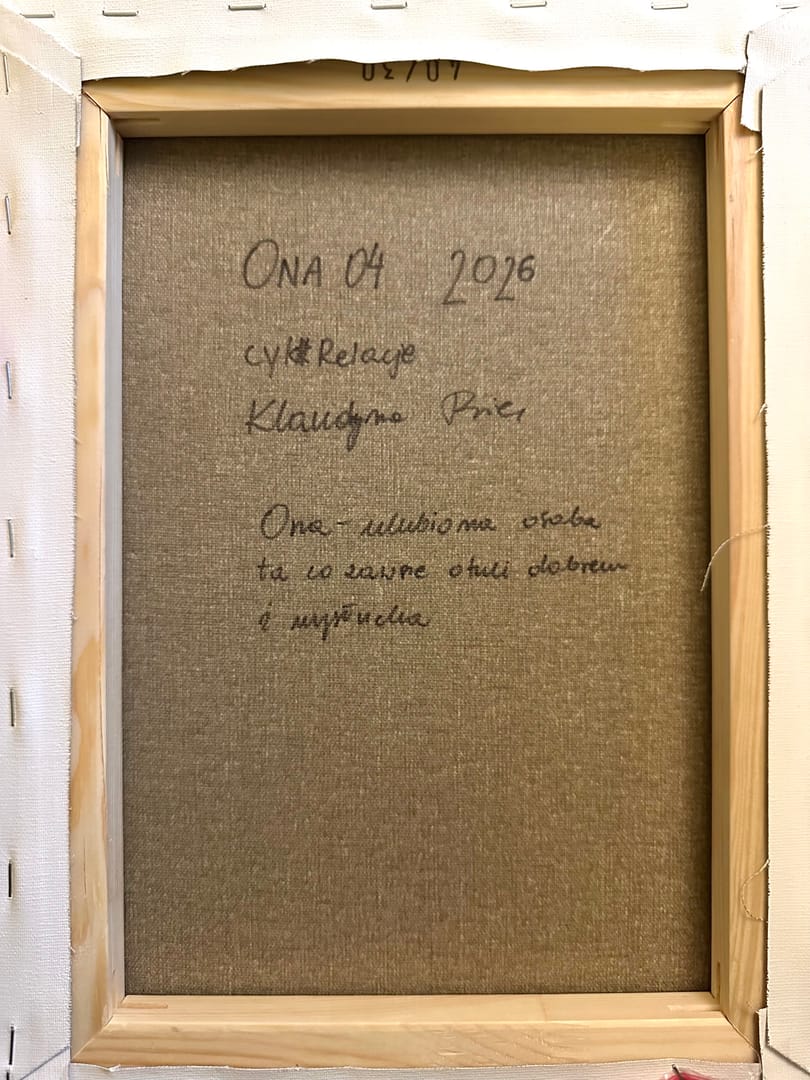 ONA 04 2026
cykl Relacje
Klaudyna
Ona - ulubiona osoba
ta co zawsze otuli dobrem
i wysłucha